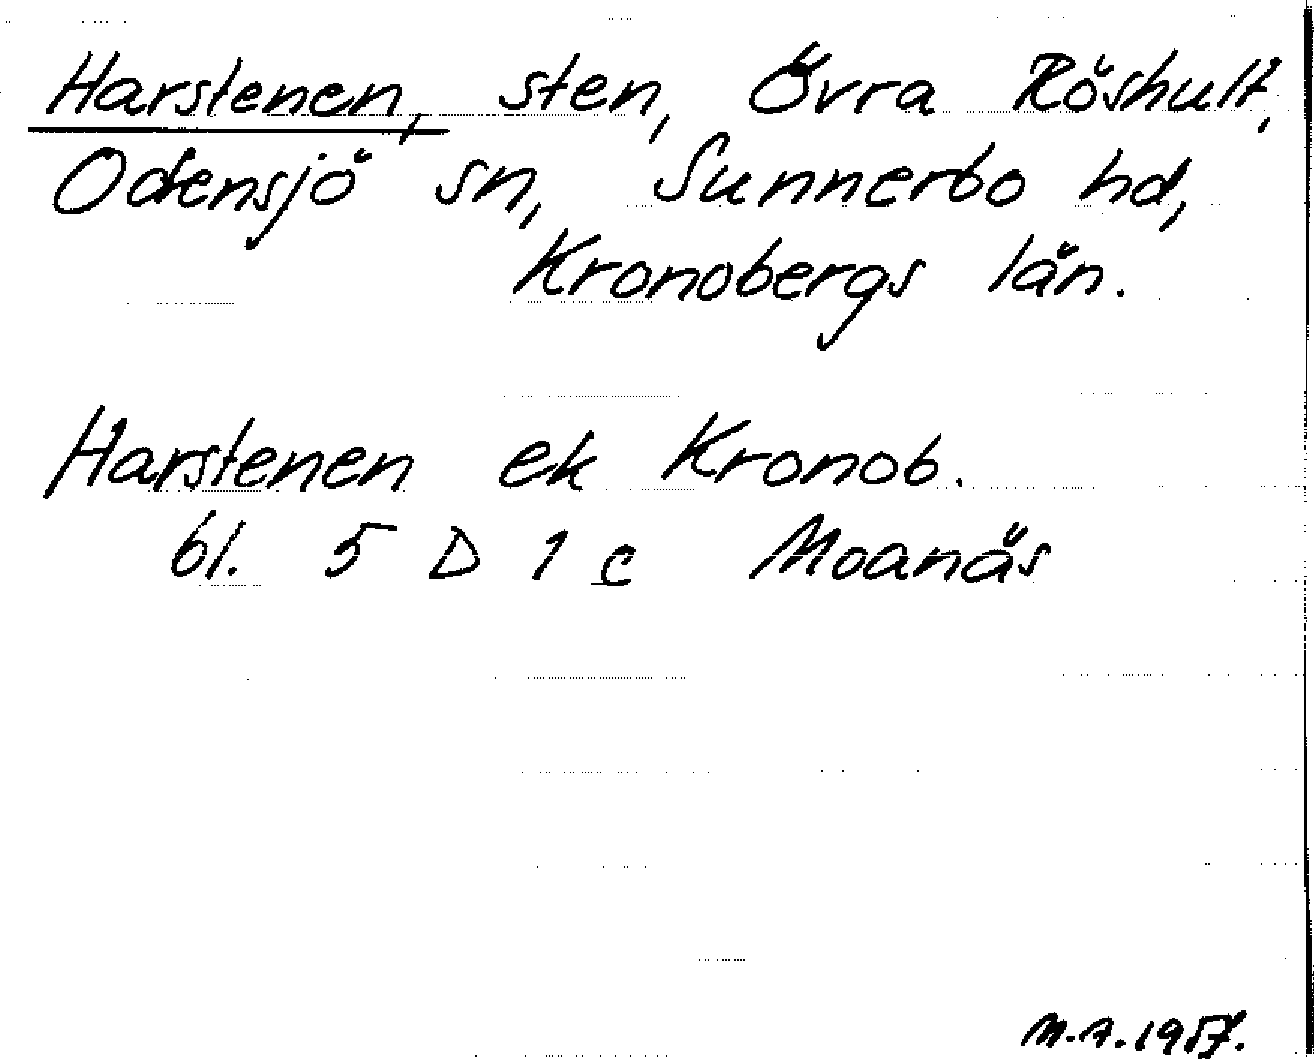 Harstenen, sten, Övra Röshult,
Odensjö sn, Sunnerbo hd,
Kronobergs län.
Harstenen ek Kronob.
bl. 5 D 1 c Moanäs
M.A. 1957.